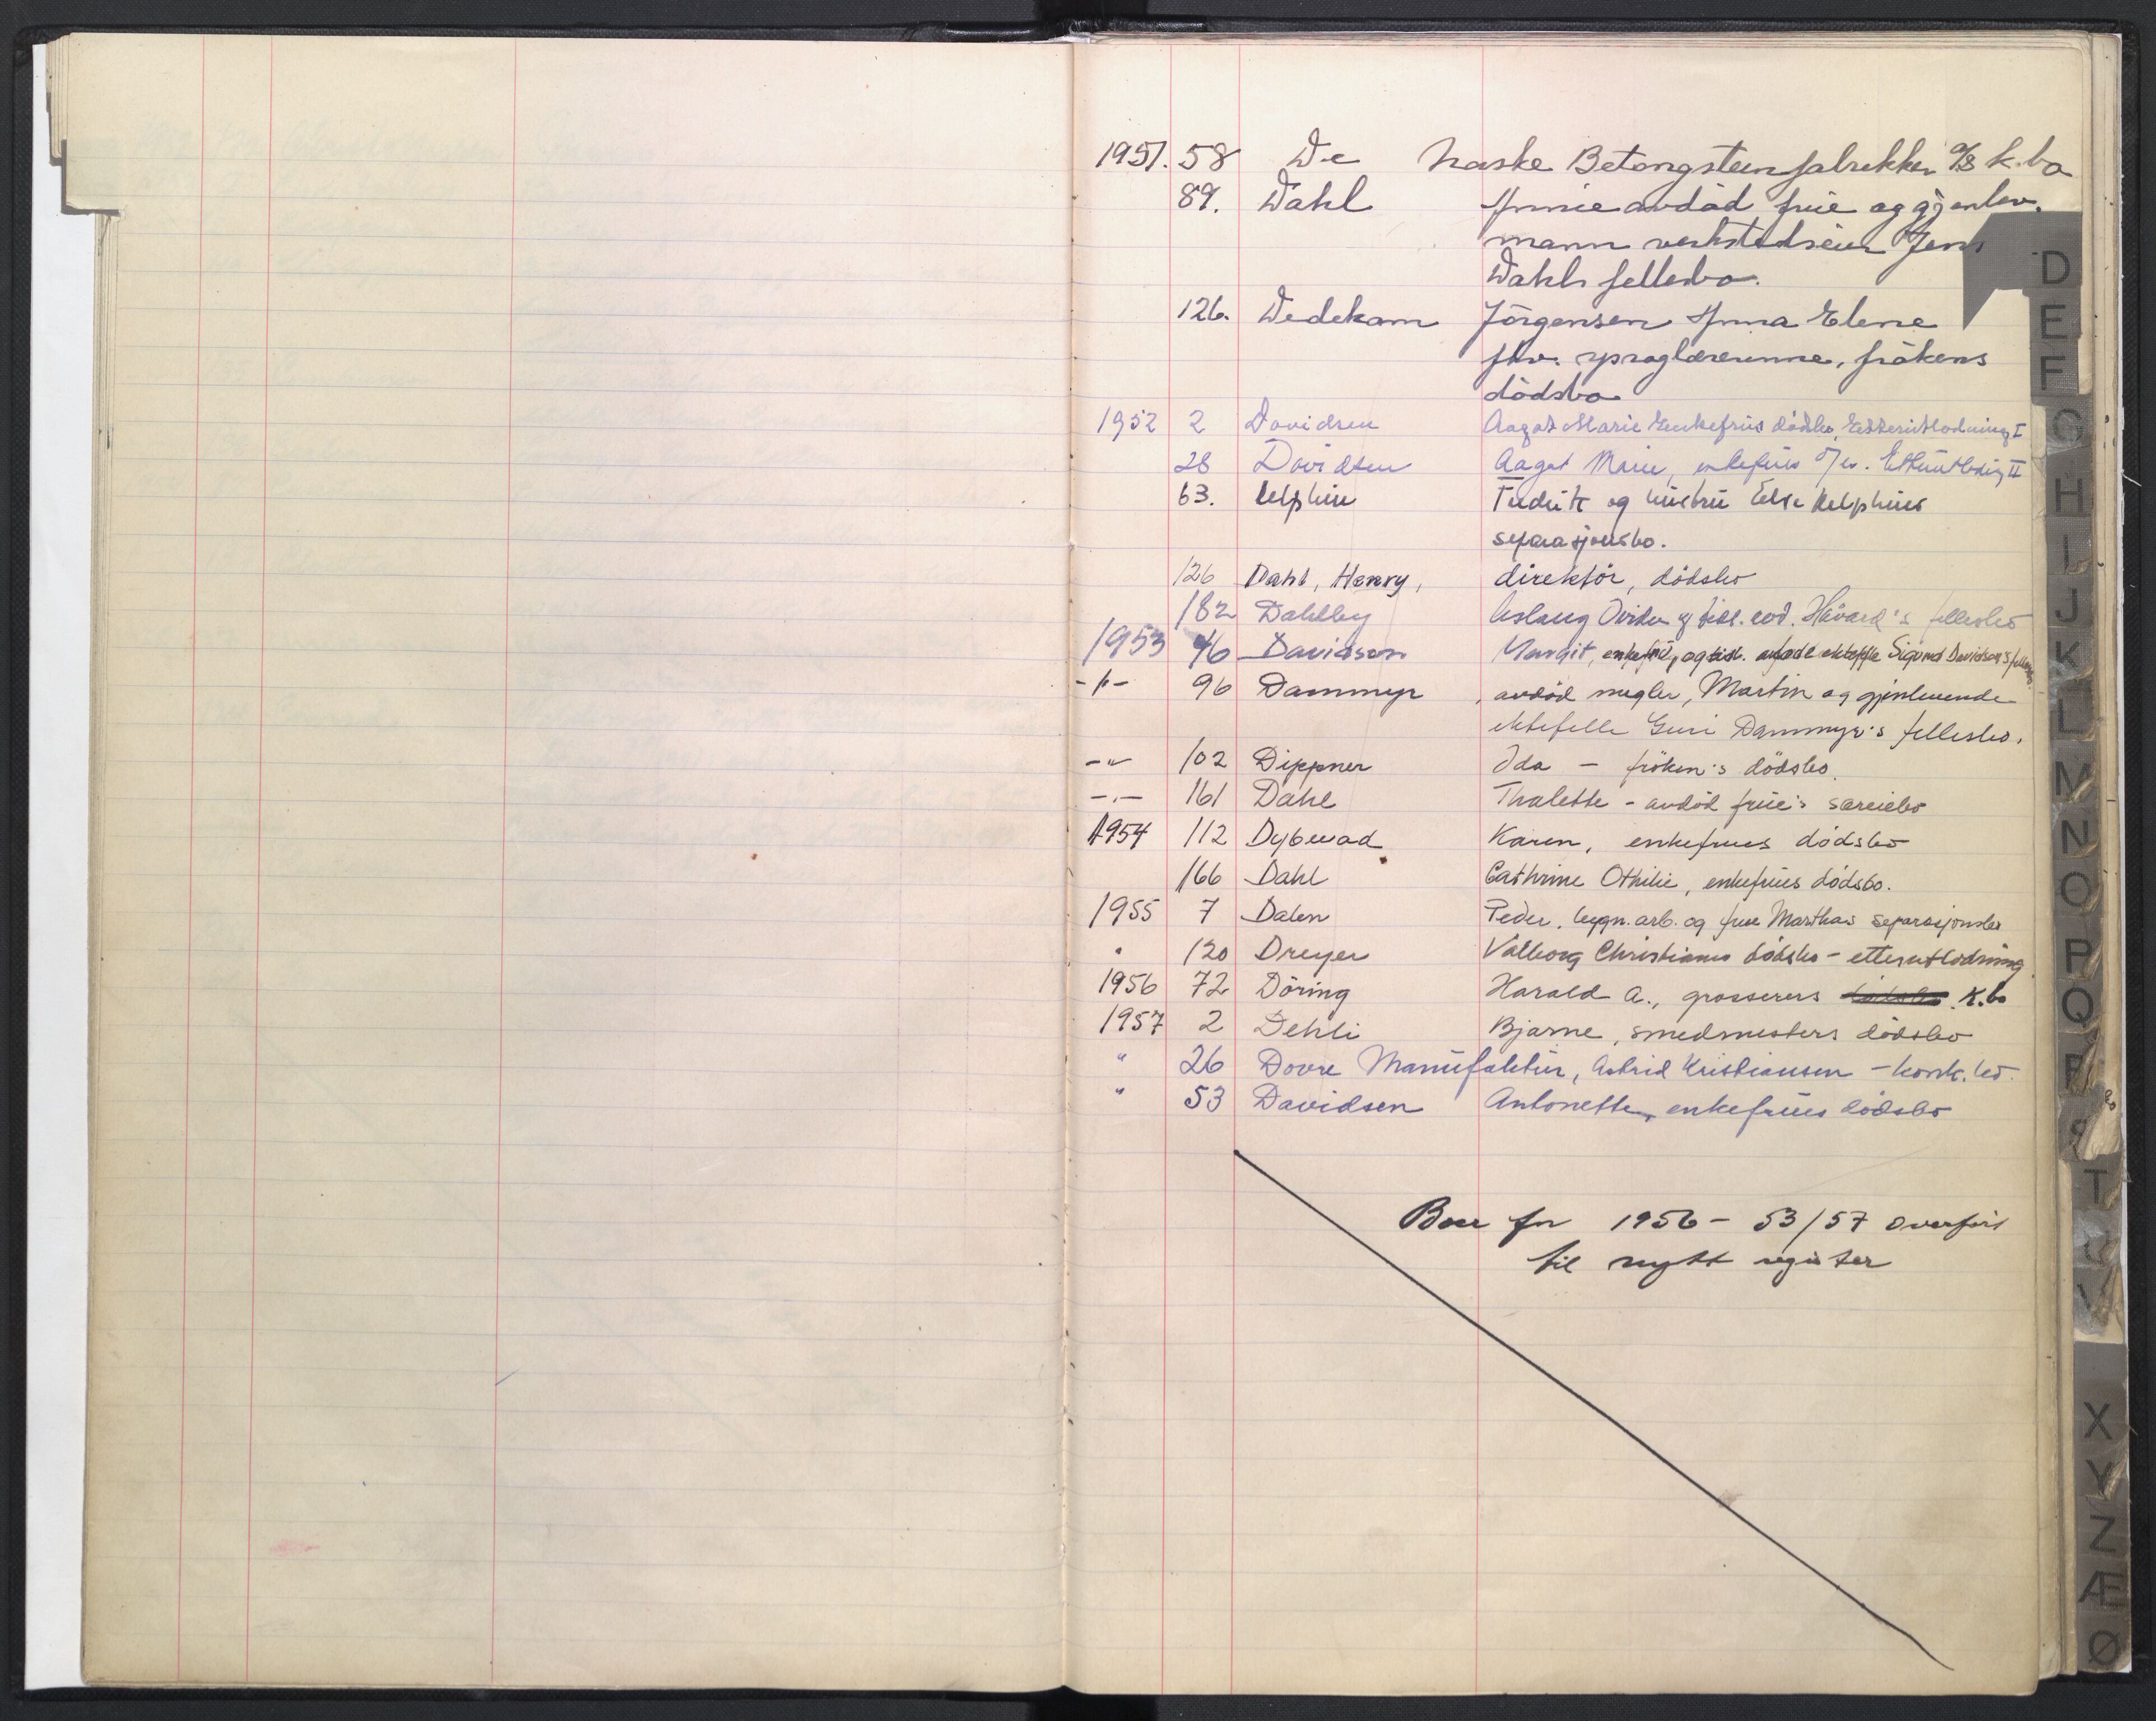 1951. 58 De Norske Betongsteinfabrikker A/S k.bo
89. Dahl Annie avdöd frue og gjenlev.
mann verkstedseier Jens
Dahls fellesbo.
126. Dedekam Jörgensen Anna Elene
fhv. spraglærerinne, frökens
dödsbo
1952 2 Davidsen Aagot Marie Enkefrus dödsbo, Etterutlodning I
28 Davidsen Aagot Marie, enkefrus Etterutlodning II
63. Delphin Fredrik og hustru Else Delphins
separasjonsbo.
126 Dahl, Henry, direktör, dödsbo
182 Dahlby Aslaug og Håvard's fellesbo
1953 46 Davidson Margit, enkefru, og tidl. avdöde ektefelle Sigurd Davidson's
-"- 96 Dammyr , avdöd megler, Martin og gjenlevende
ektefelle Guri Dammyr's fellesbo.
-"- 102 Dippner Ida - fröken's dödsbo.
-"- 161 Dahl Thalette - avdöd frue's særeiebo
1954 112 Dybwad Karen, enkefrues dödsbo
166 Dahl Cathrine Othilie, enkefrues dödsbo.
1955 7 Dalen Peder, bygn. arb. og frue Marthas separasjonsbo
" 120 Dreyer Valborg Christianes dödsbo - etterutlodning
1956 72 Döring Harald A., grosserers dödsbo K.bo
1957 2 Dehli Bjarne, smedmesters dödsbo
" 26 Dovre Manufaktur, Astrid Kristiansen - konk. bo.
" 53 Davidsen Antonette, enkefrues dödsbo
Boer for 1956 - 53/57 overfört
til nytt register
D
E
F
G
H
I
J
K
L
M
N
O
P
Q
R
S
T
U
V
X
Y
Z
Æ
Ø